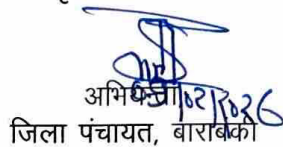 अभियन्ता
जिला पंचायत, बाराबंकी